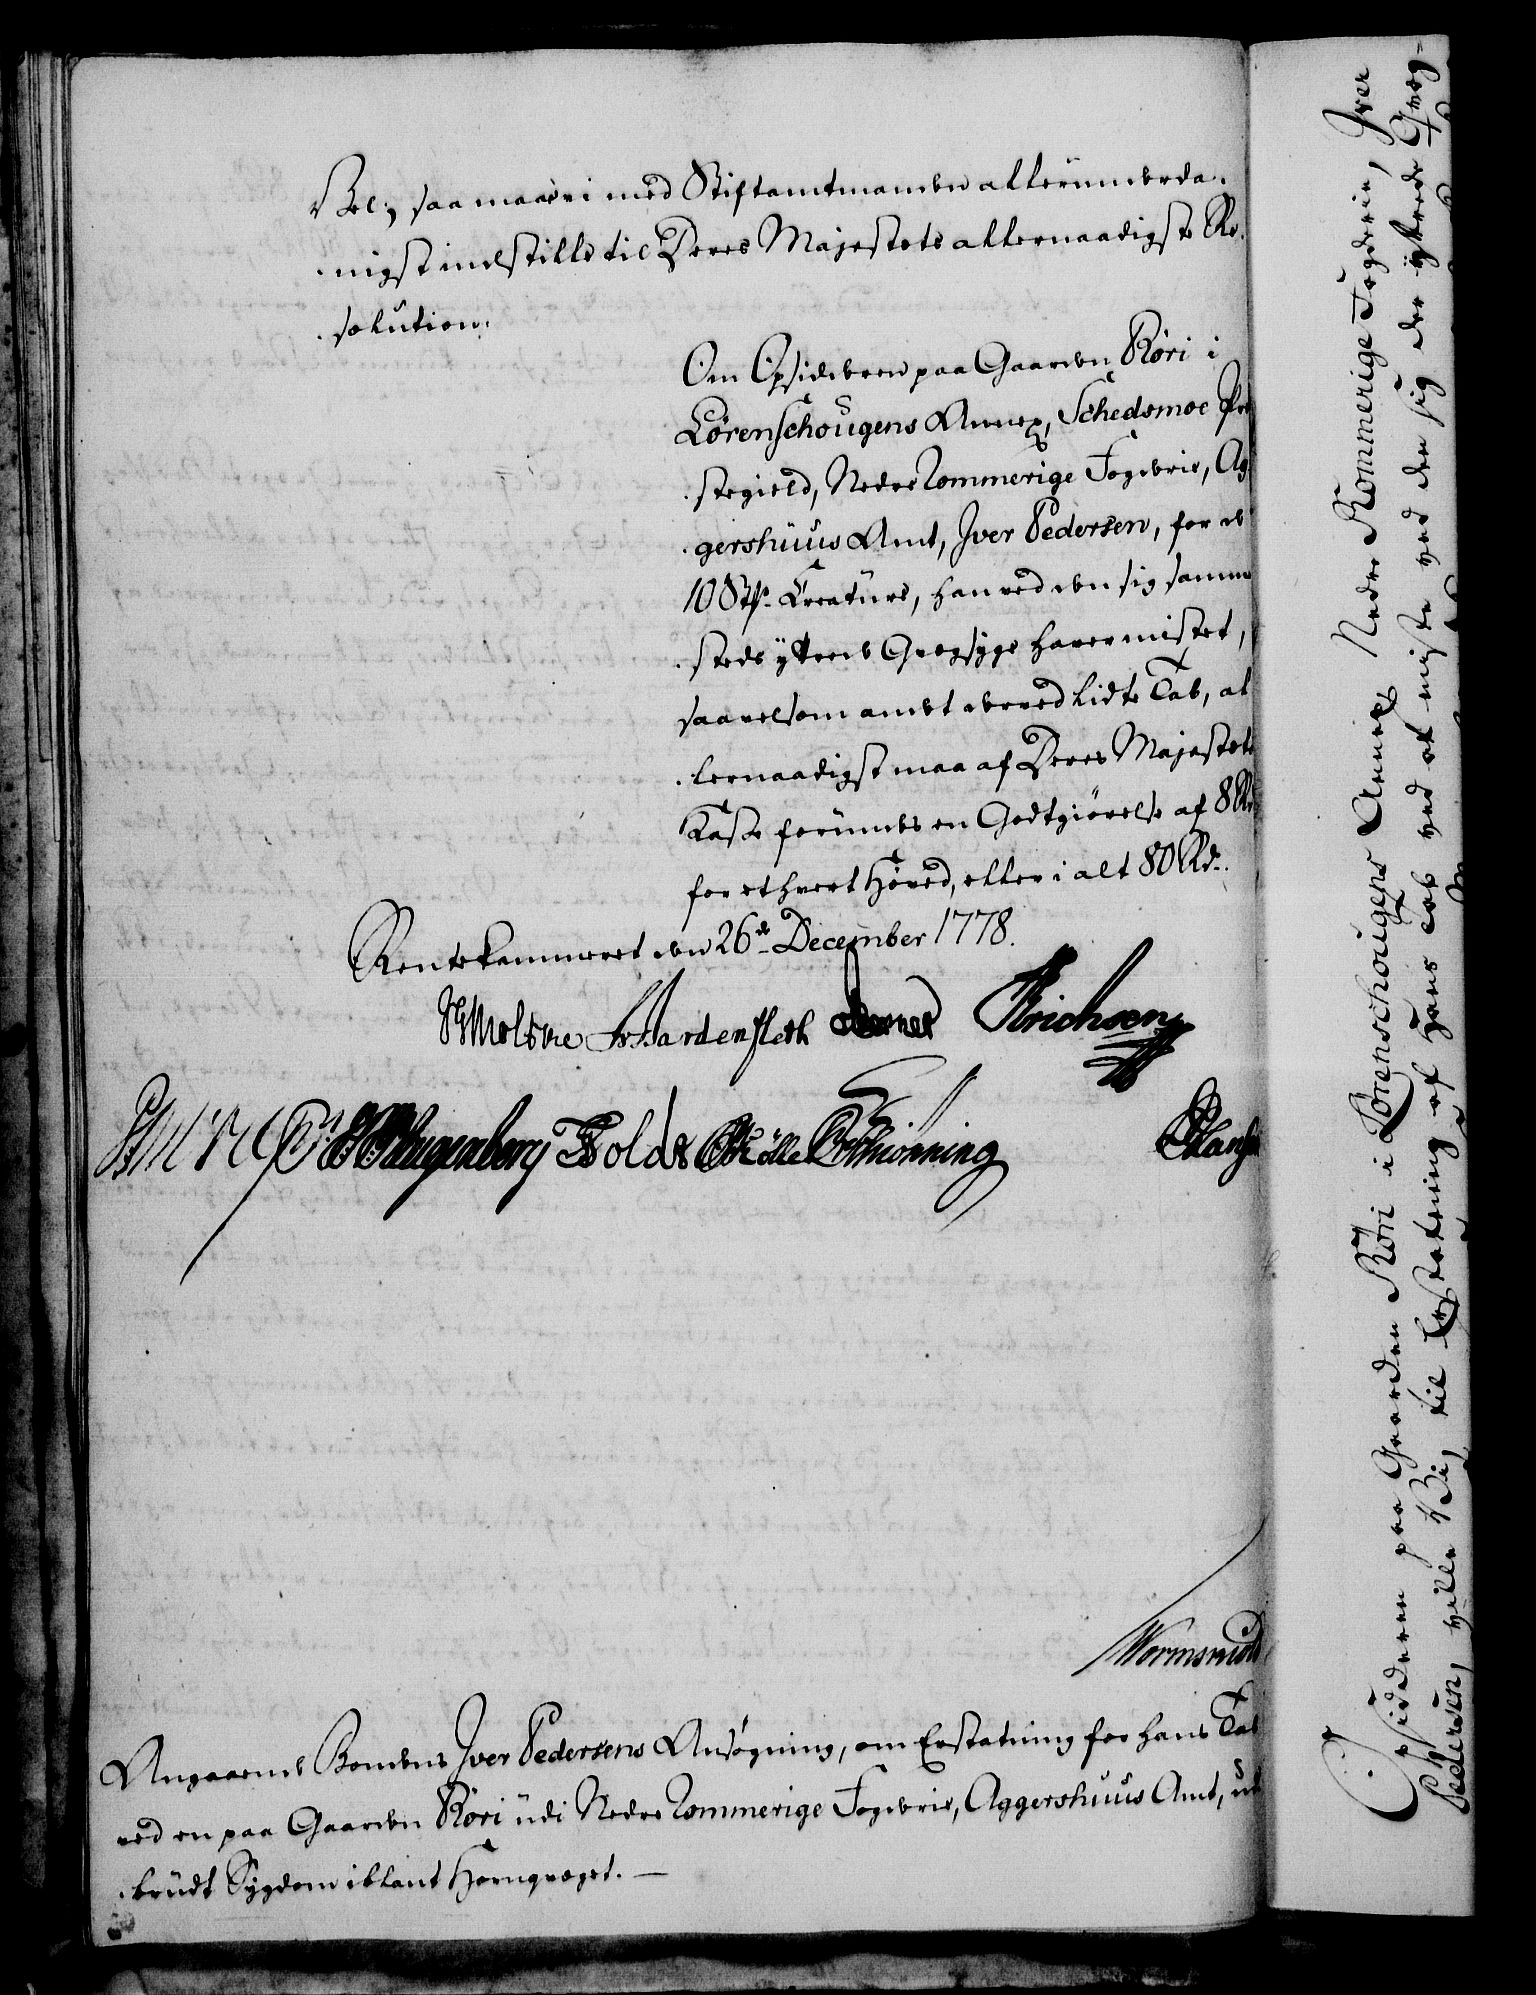 Bel:, saa maae vi med Stiftamtmanden allerunderda-
nigst indstille til Deres Majestets allernaadigste Re-
solution:
Om Opsidderen paa Gaarden Röri i
Lörenschougens Annex, Schedsmoe Præ
stegield, Nedre Rommerige Fogderie, Ag
gershuus Amt, Iver Pedersen, for de
10 Stk. Creature, han ved den sig samme
steds yttrende Qvægsyge haver mistet,
saavelsom andet derved lidte Tab, al
lernaadigst maa af Deres Majestets
Kasse forundes en Godtgiörelse af 8 Rd
for ethvert Höved, eller i alt 80 Rd.
Rentekammeret den 26de December 1778.
Moltke Wardensketh Krichsen
Selmer Müllengenberg Holde Müller Schiönning Hansen
Wormskiold
Angaaende Bonden Iver Pedersens Ansögning, om Erstatning for hans Tab
ved en paa Gaarden Röri udi Nedre Rommerige Fogderie, Aggershuus Amt, ud
brudt Sygdom iblant Hornqvæget. —
Opsidderen paa Gaarden Röri i Lörenschougens Annex Nedre Rommerige Fogderie, Iver
Pedersen, ville Vi, til Erstatning af Hans Tab ved at miste ved den sig der yttrede Qvæg-